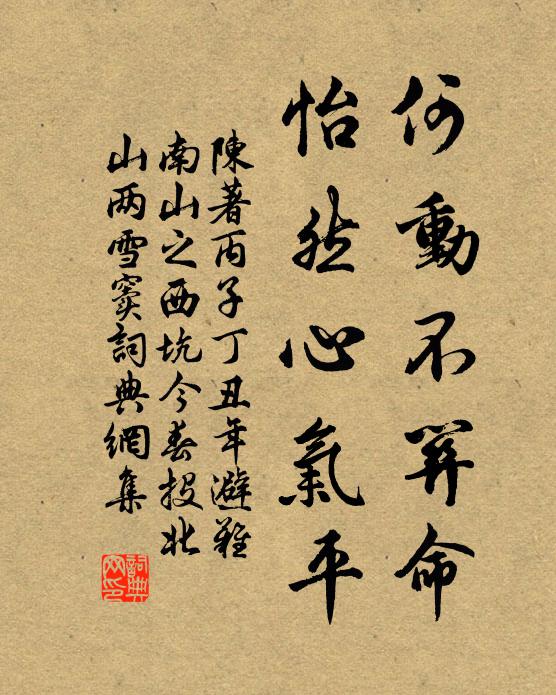 何動不算命
怡然心氣平
陳著丙子丁丑年避難
南山之西坑今春投北
山两雪竇詞典網集
詞典网印